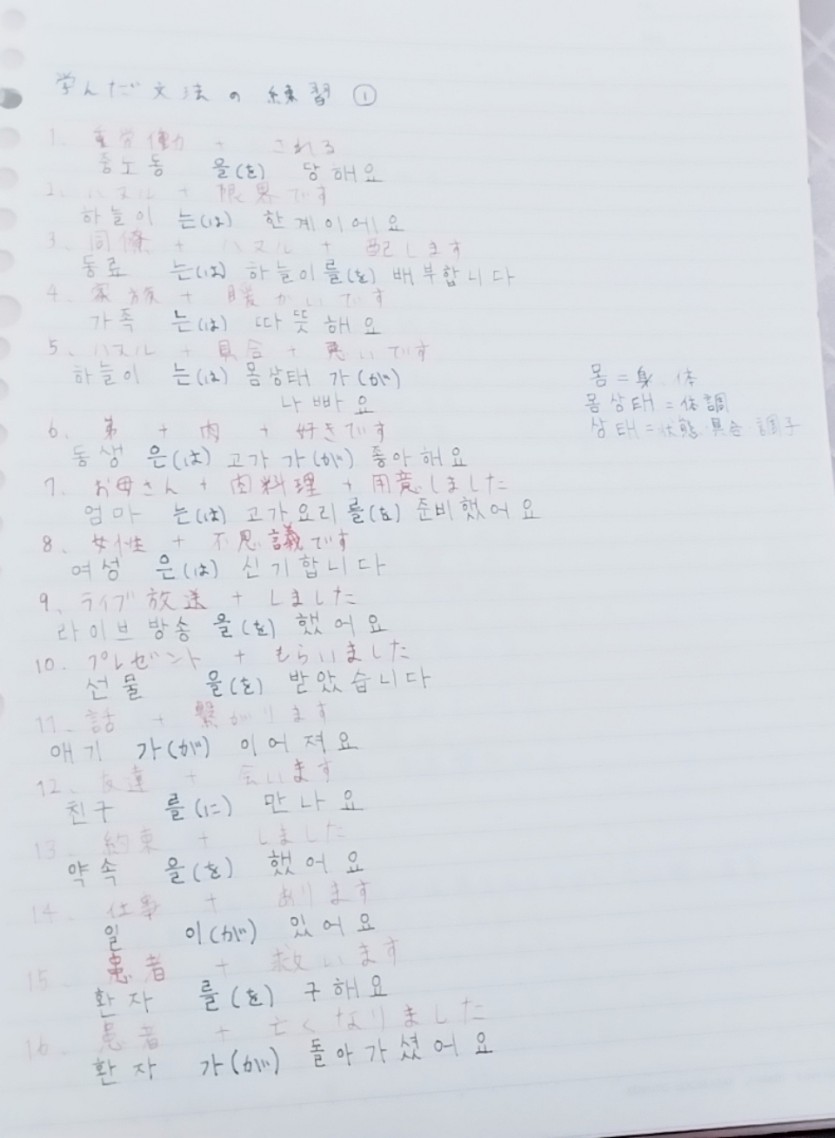 学んだ文法の練習 ①
1. 重労働 + される
중노동 을(を) 당해요
2. ハヌル + 限界です
하늘이 는(は) 한계이에요
3. 同僚 + ハヌル + 配します
동료 는(は) 하늘이를(を) 배부합니다
4. 家族 + 暖かいです
가족 는(は) 따뜻해요
5. ハヌル + 具合 + 悪いです
하늘이 는(は) 몸상태 가(が)
나빠요
몸 = 身体
몸상태 = 体調
상태 = 状態 具合 調子
6. 弟 + 肉 + 好きです
동생 은(は) 고가 가(が) 좋아해요
7. お母さん + 肉料理 + 用意しました
엄마 는(は) 고가요리 를(を) 준비했어요
8. 女性 + 不思議です
여성 은(は) 신기합니다
9. ライブ放送 + しました
라이브방송 을(を) 했어요
10. プレゼント + もらいました
선물 을(を) 받았습니다
11. 話 + 繋がります
얘기 가(が) 이어져요
12. 友達 + 会います
친구 를(に) 만나요
13. 約束 + しました
약속 을(を) 했어요
14. 仕事 + あります
일 이(が) 있어요
15. 患者 + 救います
환자 를(を) 구해요
16. 患者 + 亡くなりました
환자 가(が) 돌아가셨어요